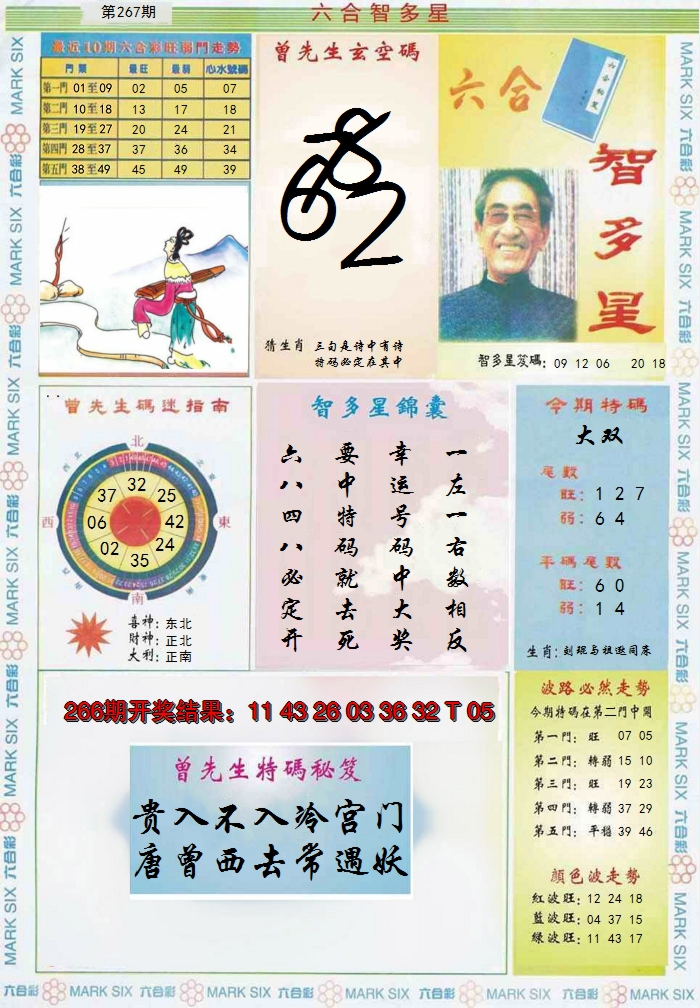 第267期
六合智多星
最近10期六合彩旺弱門走勢
門類 最旺 最弱 心水號碼
第一門 01至09 02 05 07
第二門 10至18 13 17 18
第三門 19至27 20 24 21
第四門 28至37 37 36 34
第五門 38至49 45 49 39
曾先生玄空碼
6 8 2
猜生肖 三句是诗中有诗
特码必定在其中
六合
智多星
智多星笈碼: 09 12 06 20 18
曾先生碼迷指南
北
西北
東北
西
東
西南
東南
南
32
25
42
24
35
02
06
37
喜神: 东北
财神: 正北
大利: 正南
智多星錦囊
一左一右数相反
幸运号码中大奖
要中特码就去死
六八四八必定开
今期特碼
大双
尾數
旺: 1 2 7
弱: 6 4
平碼尾數
旺: 6 0
弱: 1 4
生肖: 刘琨与祖逖同寝
266期开奖结果：11 43 26 03 36 32 T 05
曾先生特碼秘笈
贵入不入冷宫门
唐曾西去常遇妖
波路必然走勢
今期特碼在第二門中開
第一門: 旺 07 05
第二門: 轉弱 15 10
第三門: 旺 19 23
第四門: 轉弱 37 29
第五門: 平穩 39 46
顔色波走勢
紅波旺: 12 24 18
藍波旺: 04 37 15
绿波旺: 11 43 17
六合彩 MARK SIX